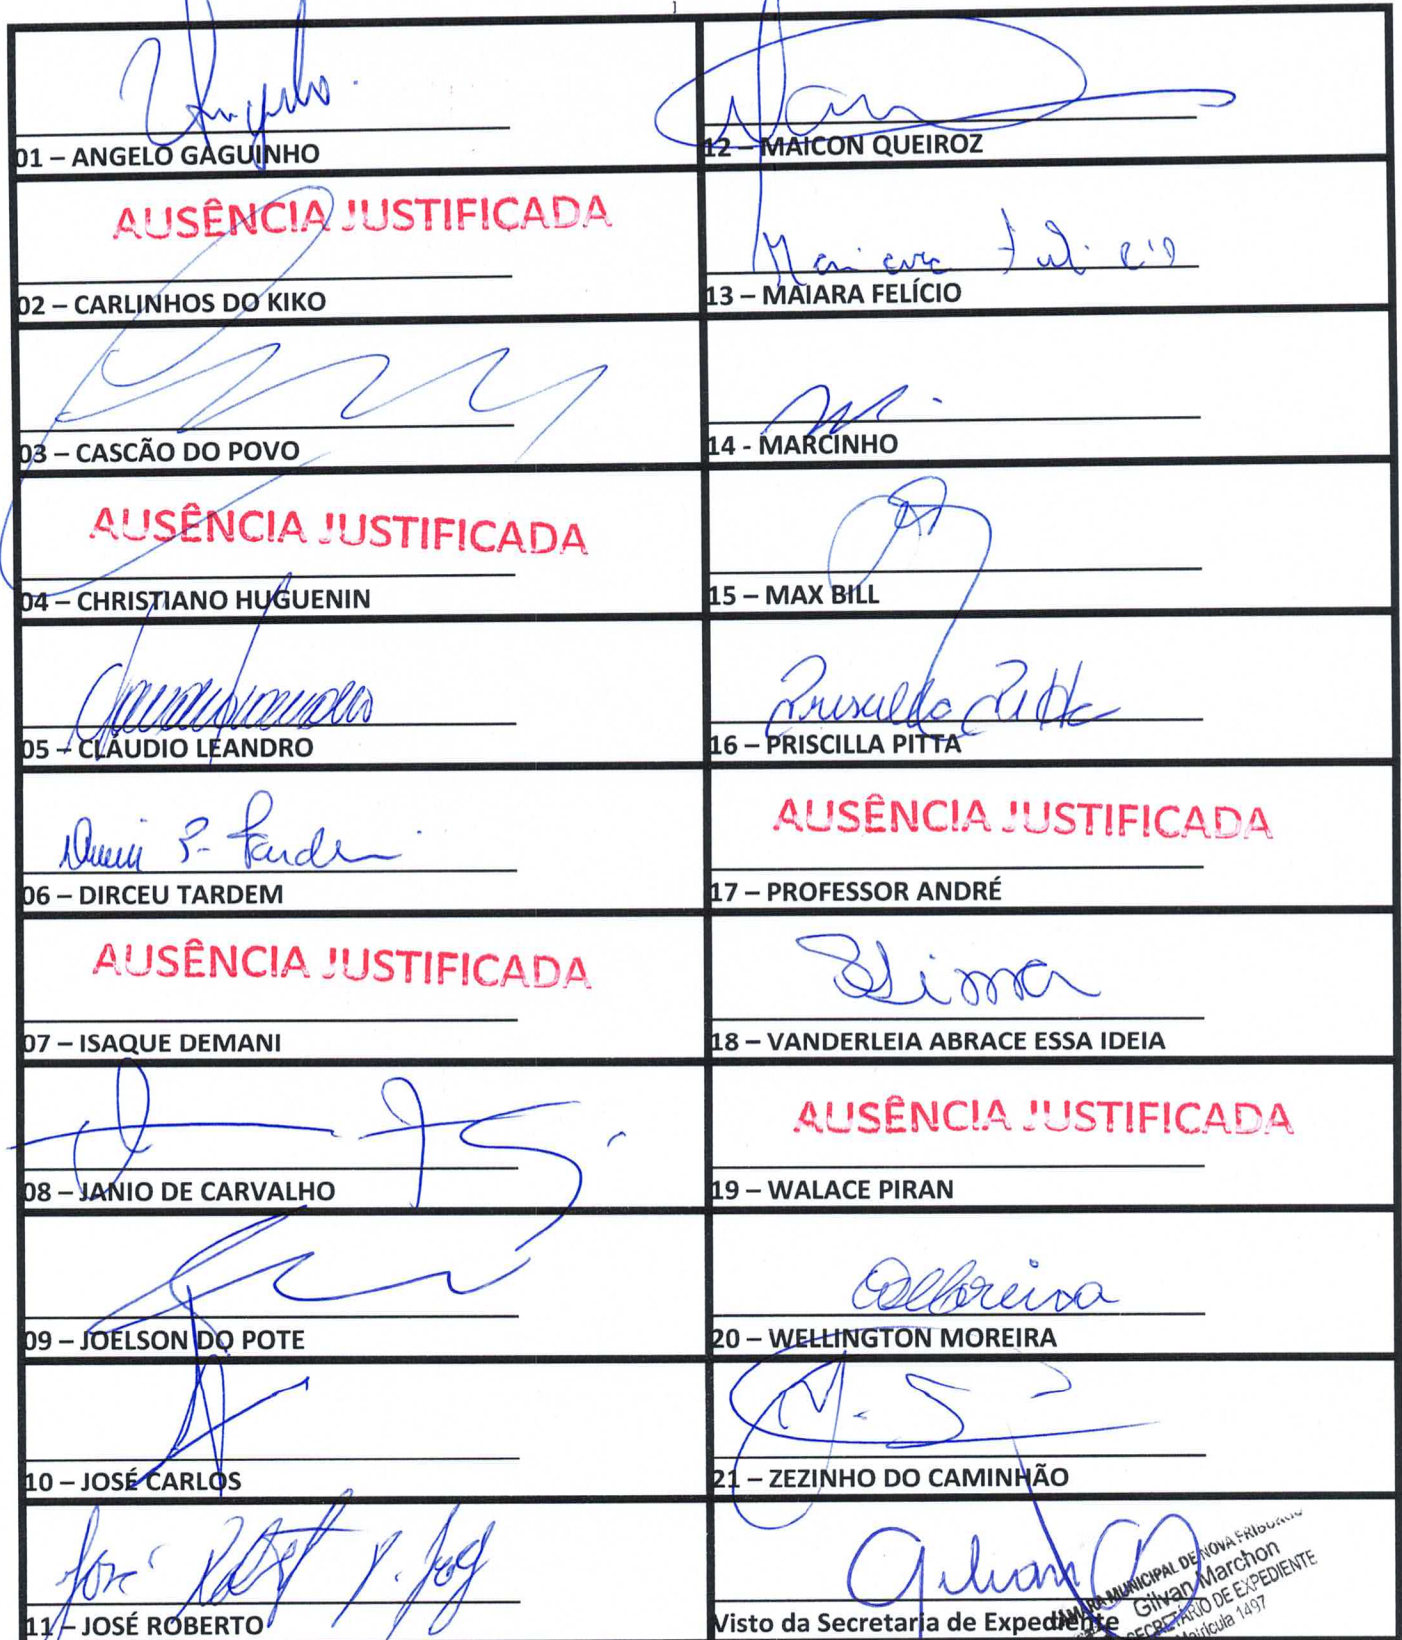 01 – ANGELO GAGUINHO
AUSÊNCIA JUSTIFICADA
02 – CARLINHOS DO KIKO
03 – CASCÃO DO POVO
AUSÊNCIA JUSTIFICADA
04 – CHRISTIANO HUGUENIN
05 – CLÁUDIO LEANDRO
06 – DIRCEU TARDEM
AUSÊNCIA JUSTIFICADA
07 – ISAQUE DEMANI
08 – JANIO DE CARVALHO
09 – JOELSON DO POTE
10 – JOSÉ CARLOS
José
11 – JOSÉ ROBERTO
12 – MAICON QUEIROZ
Maiara Felício
13 – MAIARA FELÍCIO
14 - MARCINHO
15 – MAX BILL
Priscilla Pitta
16 – PRISCILLA PITTA
AUSÊNCIA JUSTIFICADA
17 – PROFESSOR ANDRÉ
18 – VANDERLEIA ABRACE ESSA IDEIA
AUSÊNCIA JUSTIFICADA
19 – WALACE PIRAN
20 – WELLINGTON MOREIRA
21 – ZEZINHO DO CAMINHÃO
Gilvan
CÂMARA MUNICIPAL DE NOVA FRIBURGO
Gilvan Marchon
SECRETÁRIO DE EXPEDIENTE
Matrícula 1497
Visto da Secretaria de Expediente